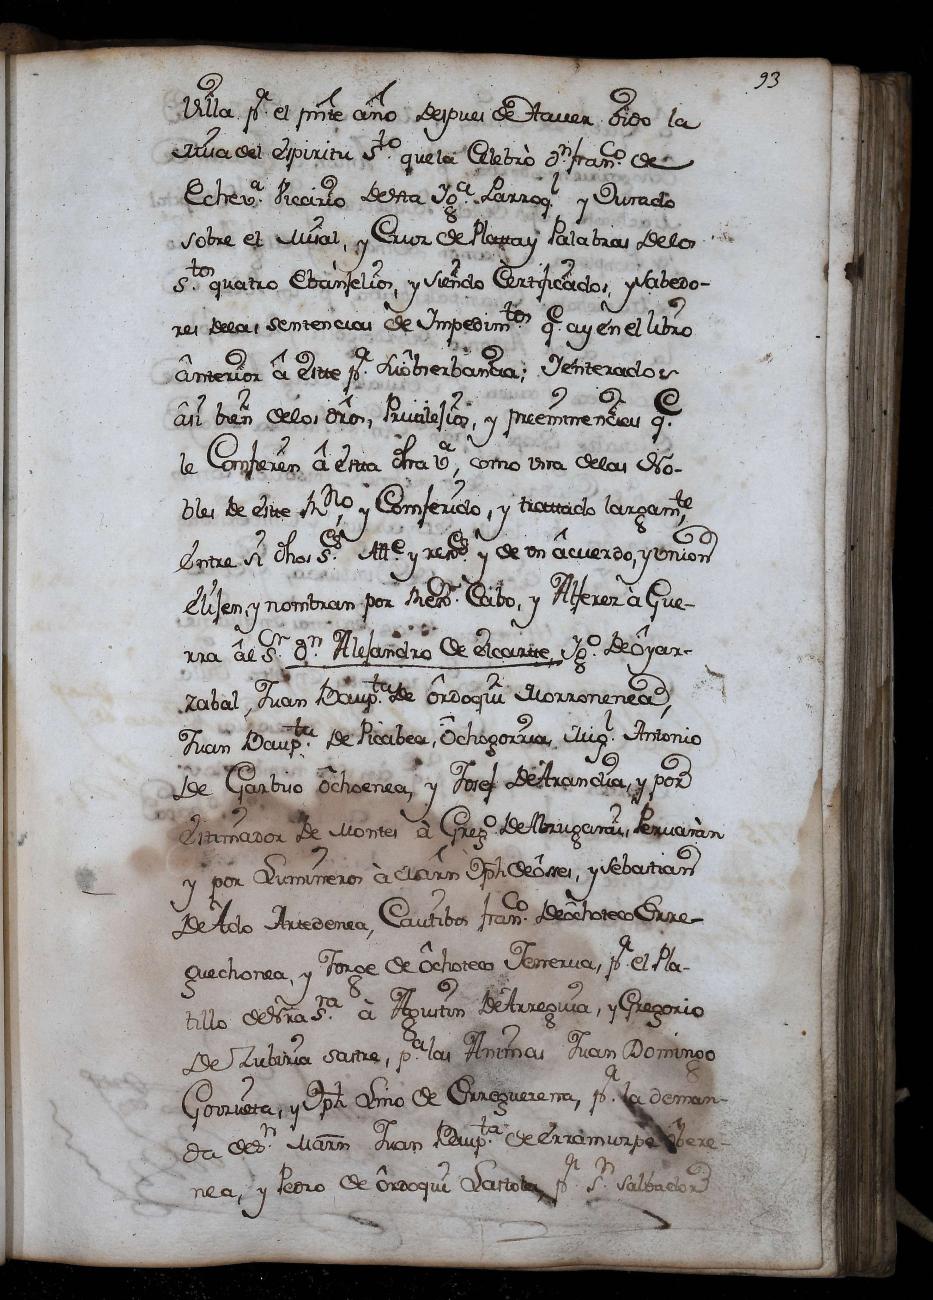 93
Villa pª. el pnte año despues de Haver Oido la
Missa del Espiritu Sto. que la Celebrò dn. franco. de
Echeva. Vicario Desta Ygª. Parroql. y Jurado
sobre el Missal, y Cruz de Platta y Palabras delos
Stos. quatro Ebanjelios, y siendo Certificados, y sabedo-
res delas sentencias de Impedimtos. q.e ay en el libro
ânterior â este pª. su ôbserbancia; Ynterados
âsi bien delos drõs, Privilejios, y preêminencias q.e
le Confieren â êsta dha vª, como una delas No-
bles de este RNo, y Conferido, y trattado largamte.
êntre si dhos Ses. Alle. y reñes. y de un âcuerdo, y union
elijen, y nombran por rexor. Cabo, y Alferez à Gue-
rra âl Sr. dn. Alejandro de elcartte, Ygo. De ôyar-
zabal, Juan Baupta. De ôrdoqui Morronenea,
Juan Baupta. De Picabea, ôchogorria, Migl. Antonio
De Garbiso ôchoenea, y Josef De Arancibia, y por
Estimador De Montes à Grego. De Abrugarai, Peruarân
y por Lumineros à Marñ Jph de ôsses, y sebastian
De Ado Artedenea, Cautibos franco. De ôchoteco Erre-
guechonea, y Jorge de ôchoteco Terreria, pª. el Pla-
tillo de ñra Sra. à Agustin De Arreguia, y Gregorio
De Zubiria sastre, pª. las Animas Juan Domingo
Gorrueta, y Jph Lino de Erreguerena, pª. la deman-
da de Sn. Marñ Juan Baupta. de êrramuzpe
nea, y Pedro de ôrdoqui Lastola, pª. Sn. Salbador